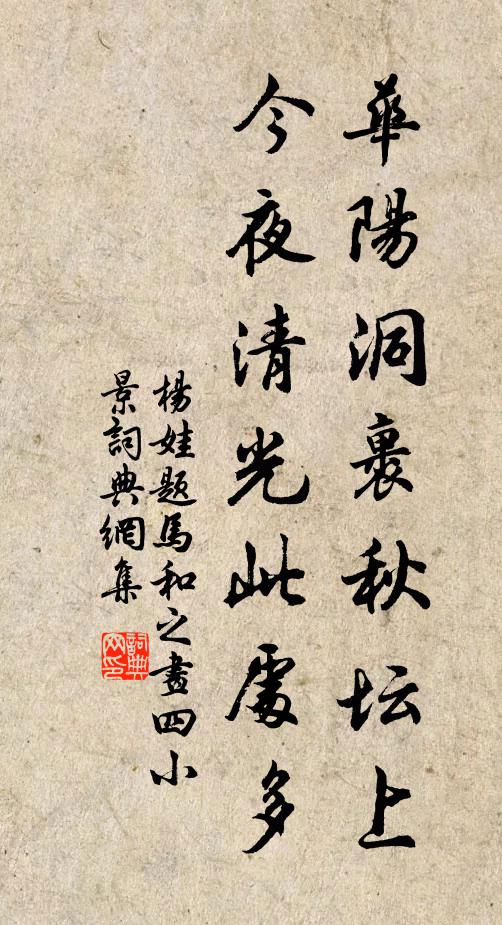 華陽洞裏秋坛上
今夜清光此處多
楊娃题馬和之畫四小
景詞典網集
詞典
网印